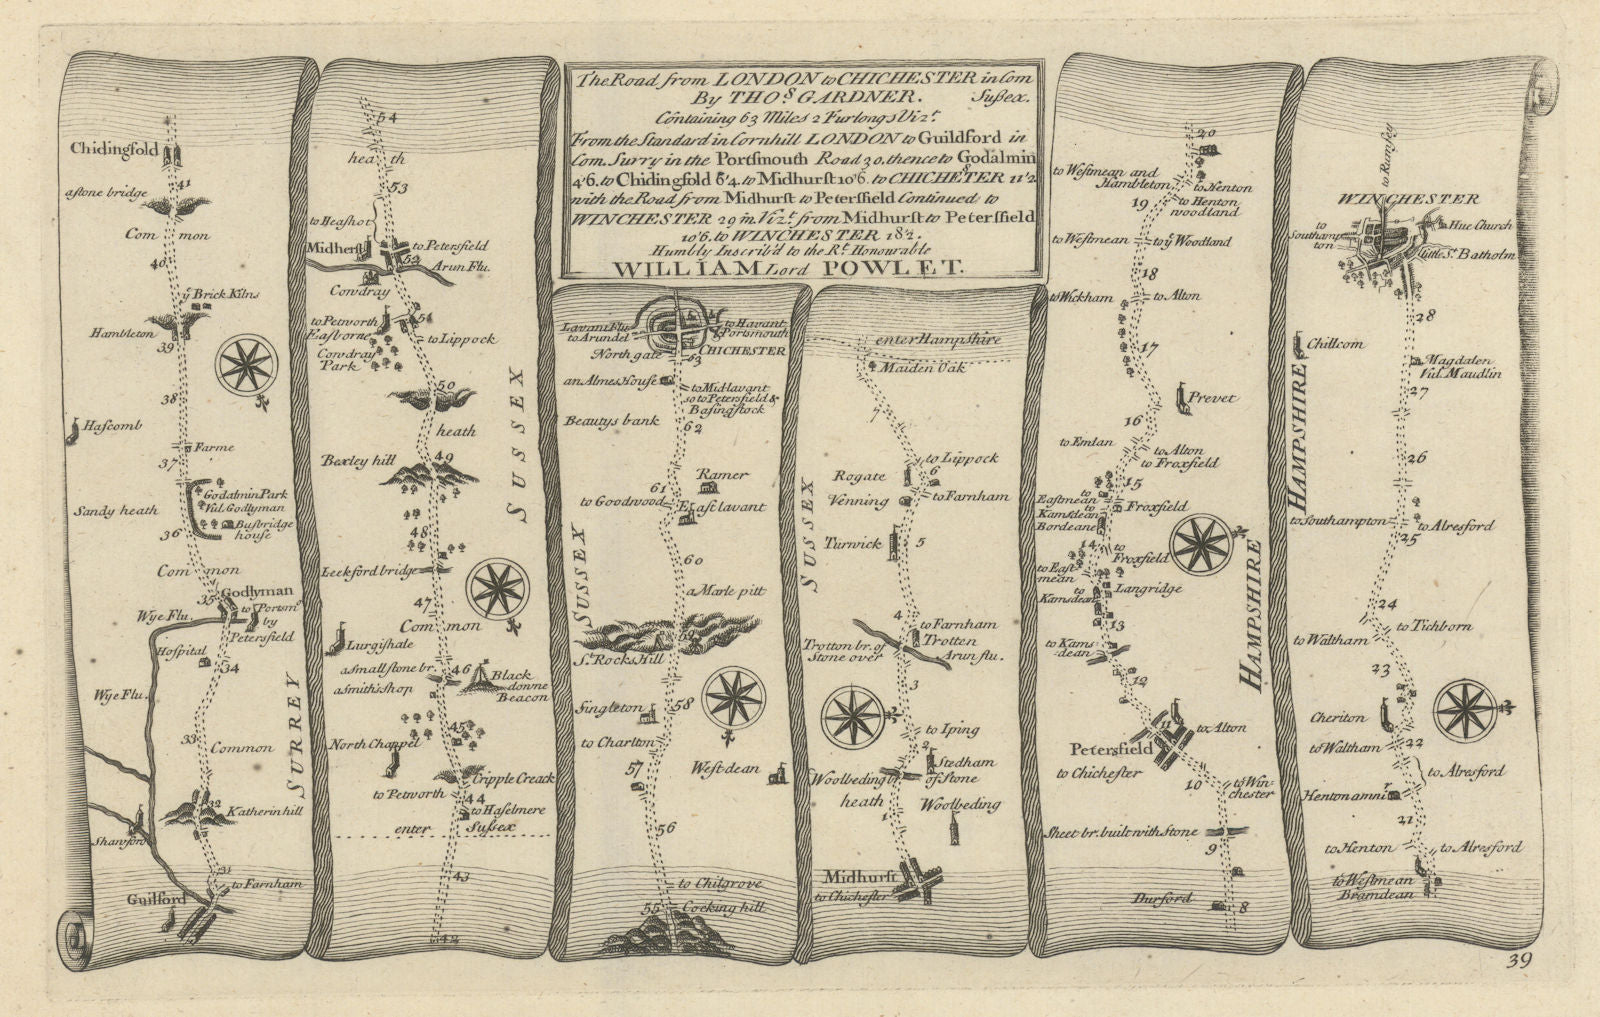 The Road from LONDON to CHICHESTER in Com
By THOS. GARDNER. Sußex.
Containing 63 Miles 2 Furlongs Vizt.
From the Standard in Cornhill LONDON to Guildford in
Com. Surry in the Portsmouth Road 30. thence to Godalmin
4'6. to Chidingfold 6'4. to Midhurst 10'6. to CHICHESTER 11'2.
with the Road from Midhurst to Petersfield Continued to
WINCHESTER 29 m. Vizt. from Midhurst to Petersfield
10'6. to WINCHESTER 18'2.
Humbly Inscrib'd to the Rt. Honourable
WILLIAM Lord POWLET.
Chidingfold
41
a stone bridge
Common
40
ye Brick Kilns
Hambleton
39
38
Hascomb
Farme
37
Godalmin Park
Vul. Godlyman
Sandy heath
Busbridge
house
36
Common
35
Godlyman
to Portsmo.
by
Petersfield
Wye Flu.
Hospital
34
Wye Flu.
33
Common
SURREY
32
Katherin hill
Shawford
31
to Farnham
Guilford
54
heath
53
to Heashot
Midherst
to Petersfield
52
Arun Flu.
Cowdray
to Petworth
51
Easborne
to Lippock
Cowdray
Park
50
SUSSEX
heath
Bexley hill
49
48
Leekford bridge
47
Common
Lurgishale
a small stone br.
46
Black
downe
Beacon
a smith's shop
45
North Chappel
Cripple Creack
to Petworth
44
to Haselmere
enter Sußex
43
42
Lavant Flu
to Arundel
to Havant
Portsmouth
North gate
CHICHESTER
63
an Almes House
to Midlavant
so to Petersfield &
Basingstock
Beautys bank
62
Ramer
61
to Goodwood
East lavant
SUSSEX
60
a Marle pitt
59
St. Rocks Hill
Singleton
58
to Charlton
57
West dean
56
to Chilgrove
55
Cocking hill
enter Hampshire
Maiden Oak
7
to Lippock
Rogate
6
Venning
to Farnham
SUSSEX
Turwick
5
4
to Farnham
Trotton br. of
Stone over
Trotten
Arun flu.
3
to Iping
2
Stedham
of stone
Woolbeding
heath
Woolbeding
1
Midhurst
to Chichester
20
to Westmean and
Hambleton
to Henton
19
to Henton
woodland
to Westmean
to ye Woodland
18
to Wickham
to Alton
17
Prevet
16
to Emlan
to Alton
to Froxfield
15
to
Eastmean
to
Kamsdean
Bordeane
Froxfield
14
to
Froxfield
to East
mean
to
Kamsdean
Langridge
13
to Kams
dean
HAMPSHIRE
12
11
to Alton
Petersfield
to Chichester
10
to Win
chester
Sheet br. built with Stone
9
Durford
8
to Rumsey
WINCHESTER
to
Southamp
ton
Hue Church
Little St. Batholm
28
Chillcom
Magdalen
Vul. Maudlin
27
HAMPSHIRE
26
to Southampton
to Alresford
25
24
to Tichborn
to Waltham
23
Cheriton
to Waltham
22
to Alresford
Henton amnir
21
to Henton
to Alresford
to Westmean
Bramdean
39